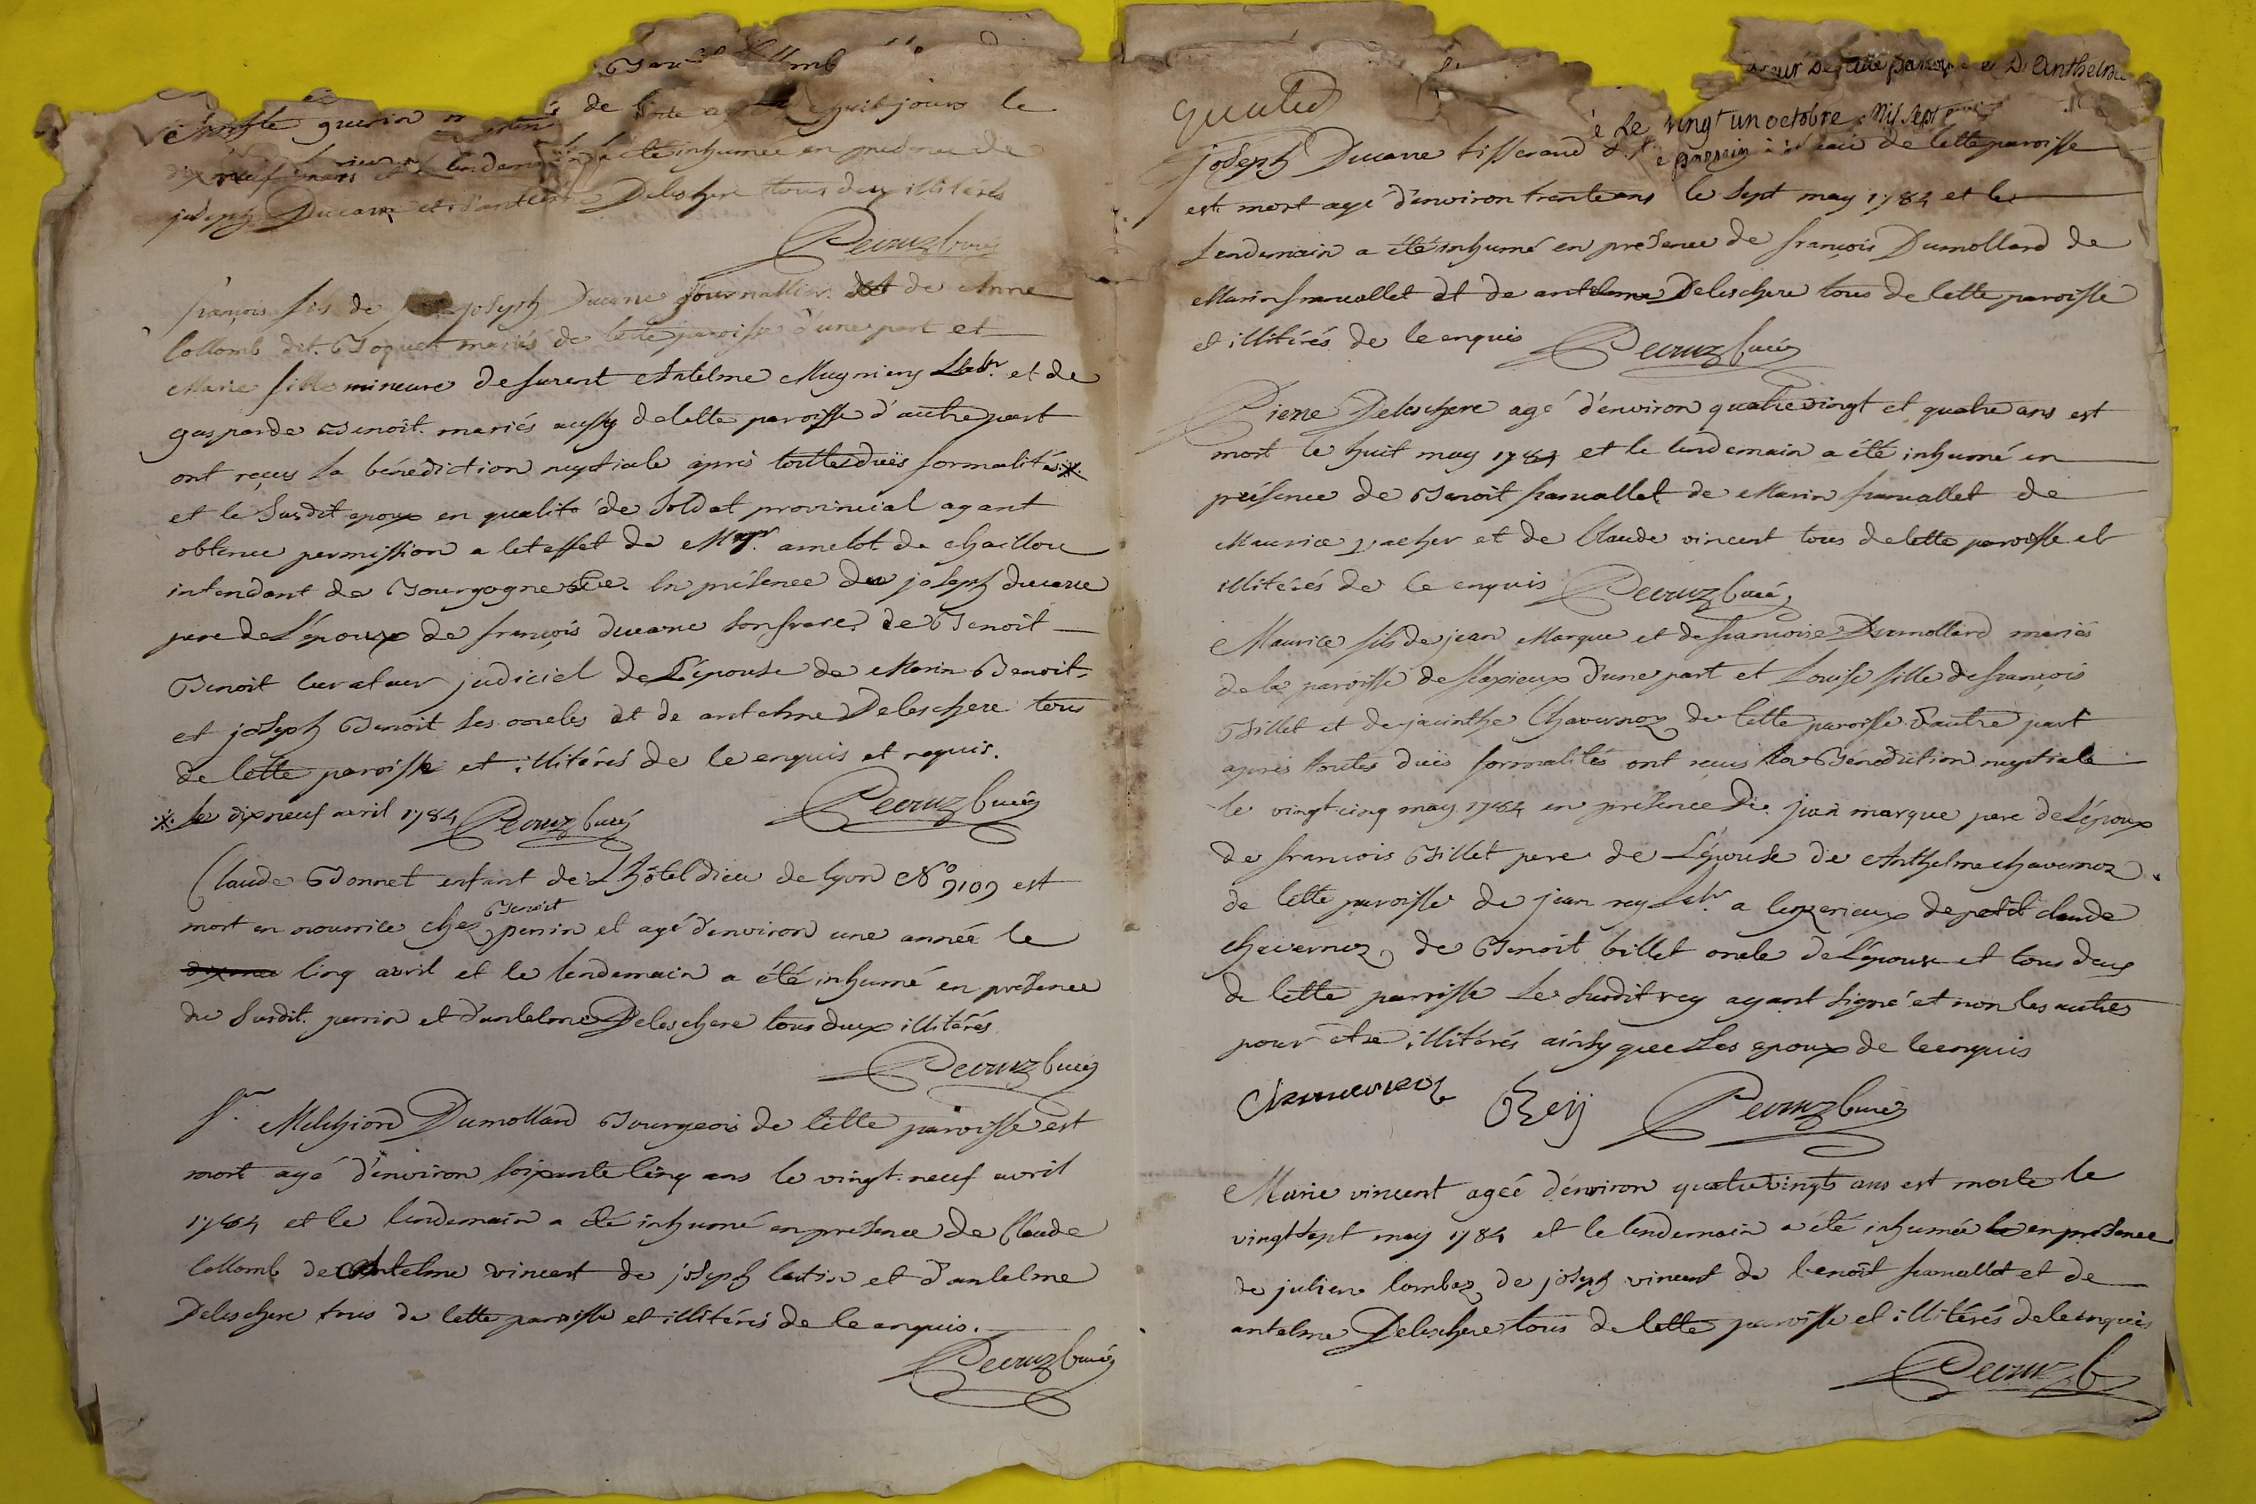 guerin de huit jours le
et le lendemain a été inhumee en presence de
joseph Ducarre et d'antelme Deleschere tous deux illitérés
Decruz curé
françois fils de joseph Ducarre journallier et de Anne
Collomb dit mariés de cette paroisse d'une part et
Marie fille mineure de furent Antelme Mugniery Labr. et de
gasparde Benoit mariés aussy de cette paroisse d'autre part
ont reçus la bénédiction nuptiale après touttes duës formalités ※
et le susdit epoux en qualité de soldat provincial ayant
obtenu permission a cet effet de Mgr. amelot de chaillou
intendant de Bourgogne &c. En présence de joseph ducarre
pere de L'époux de françois ducarre son frere de Benoit
Benoit curateur judiciel de L'épouse de Marin Benoit
et joseph Benoit ses oncles et de antelme Deleschere tous
de cette paroisse et illitérés de ce enquis et requis.
※ le dix neuf avril 1784 Decruz curé Decruz curé
Claude Bonnet enfant de L'hôtel dieu de lyon No 9109 est
Benoit
mort en nourrice chez perrin et agé d'environ une année le
cinq avril et le lendemain a été inhumé en présence
du susdit perrin et d'antelme Deleschere tous deux illitérés
Decruz curé
Sr. Melchiord Dumollard Bourgeois de cette paroisse est
mort agé d'environ soixante cinq ans le vingt neuf avril
1784 et le lendemain a été inhumé en présence de Claude
Collomb de Antelme vincent de joseph et d'antelme
Deleschere tous de cette paroisse et illitérés de ce enquis.
Decruz curé
de cette paroisse et D'Anthelme
Le vingt un octobre mil sept
joseph Ducarre tisserand de cette paroisse
est mort agé d'environ trente ans le sept may 1784 et le
Lendemain a été inhumé en présence de françois Dumollard de
Marin francallet et de antelme Deleschere tous de cette paroisse
et illitérés de ce enquis Decruz curé
Pierre Deleschere agé d'environ quatre vingt et quatre ans est
mort le huit may 1784 et le lendemain a été inhumé en
présence de Benoit francallet de Marin francallet de
Maurice vacher et de Claude vincent tous de cette paroisse et
illitérés de ce enquis Decruz curé
Maurice fils de jean Marque et de francoise Dumollard mariés
de la paroisse de flaxieux d'une part et Louise fille de francois
Billet et de jacinthe Chavernoz de cette paroisse d'autre part
après toutes duës formalités ont reçus la Bénédiction nuptiale
le vingt cinq may 1784 en présence de jean marque pere de L'époux
de francois Billet pere de L'épouse de Anthelme chavernoz
de cette paroisse de jean rey Labr. a de petit claude
chavernoz de Benoit billet oncle de L'épouse et tous deux
de cette parrisse Le susdit rey ayant signé et non les autres
pour etre illitérés ainsy que Les epoux de ce enquis
Chavernoz Reij Decruz curé
Marie vincent agée d'environ quatre vingts ans est morte le
vingt sept may 1784 et le lendemain a été inhumée en présence
de julien Combaz de joseph vincent de benoit francallet et de
antelme Deleschere tous de cette paroisse et illitérés de ce enquis
Decruz c